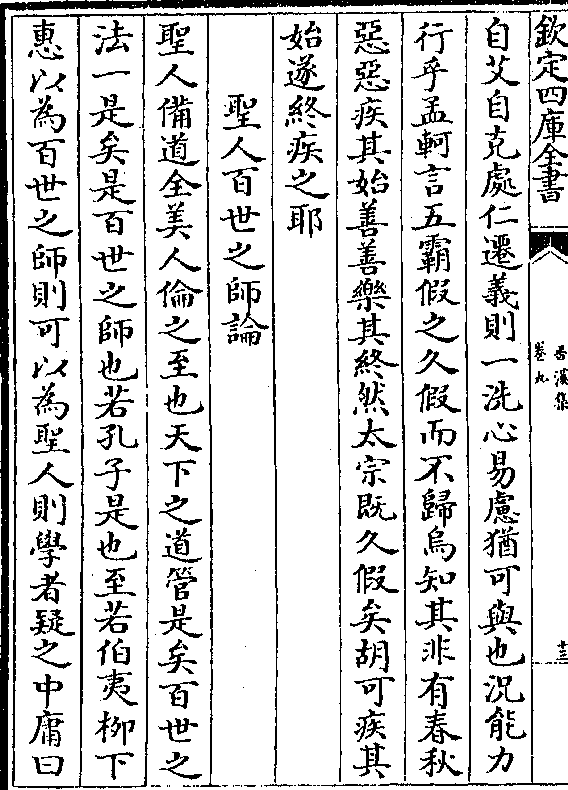 欽定四庫全書
苕溪集
卷九
十三
自艾自克處仁遷義則一洗心易慮猶可與也況能力
行乎孟軻言五霸假之久假而不歸烏知其非有春秋
惡惡疾其始善善樂其終然太宗既久假矣胡可疾其
始遂終疾之耶
聖人百世之師論
聖人備道全美人倫之至也天下之道管是矣百世之
法一是矣是百世之師也若孔子是也至若伯夷栁下
惠以為百世之師則可以為聖人則學者疑之中庸曰